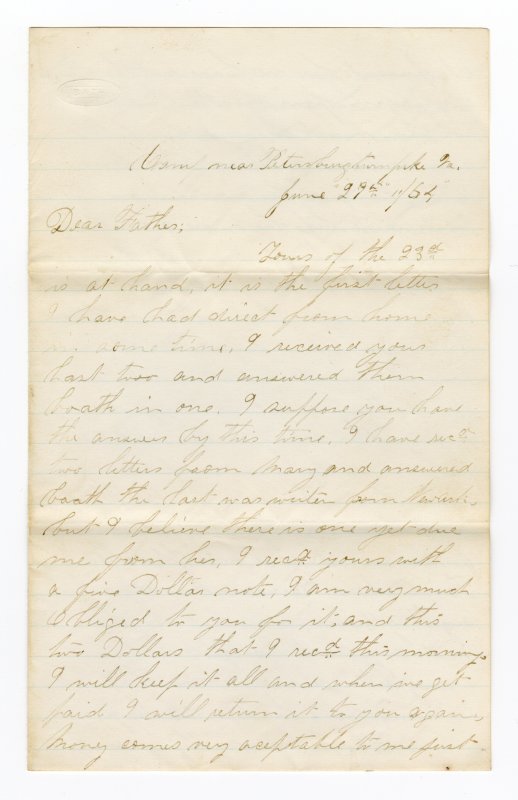 Camp near Petersburg turnpike Va.
June "29th" "/64"
Dear Father;
Yours of the 23rd
is at hand, it is the first letter
I have had direct from home
in some time. I received your
last two and answered them
boath in one. I suppose you have
the answer by this time. I have recd
two letters from Mary and answered
boath the last was writen from Newark,
but I believe there is one yet due
me from her, I recd yours with
a five Dollar note, I am very much
Obliged to you for it, and this
two Dollars that I recd this morning.
I will keep it all and when we get
paid I will return it to you again,
Money comes very aceptable to me just